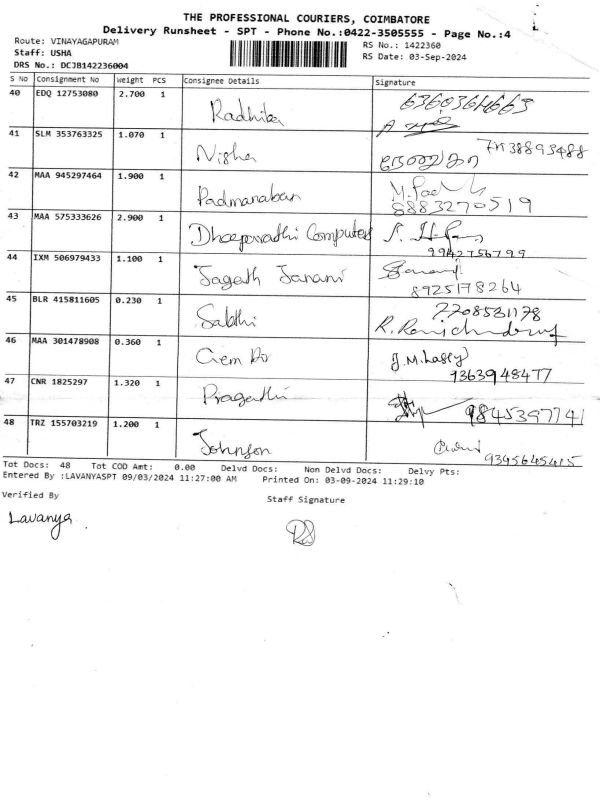 THE PROFESSIONAL COURIERS, COIMBATORE
Delivery Runsheet - SPT - Phone No.:0422-3505555 - Page No.:4
Route: VINAYAGAPURAM RS No.: 1422360
Staff: USHA RS Date: 03-Sep-2024
DRS No.: DCJB142236004
S No Consignment No Weight PCS Consignee Details Signature
40 EDQ 12753080 2.700 1 Radhika 6360364663
41 SLM 353763325 1.070 1 Nisha
42 MAA 945297464 1.900 1 Padmanaban 8883270519
43 MAA 575333626 2.900 1 Computers 9942756799
44 IXM 506979433 1.100 1 Jagath Janani
8925178264
45 BLR 415811605 0.230 1 Sakthi 2208531178
46 MAA 301478908 0.360 1 Gem
9363948477
47 CNR 1825297 1.320 1 Pragathi 9845397741
48 TRZ 155703219 1.200 1 Johnson
9395645415
Tot Docs: 48 Tot COD Amt: 0.00 Delvd Docs: Non Delvd Docs: Delvy Pts:
Entered By :LAVANYASPT 09/03/2024 11:27:00 AM Printed On: 03-09-2024 11:29:10
Verified By Staff Signature
Lavanya